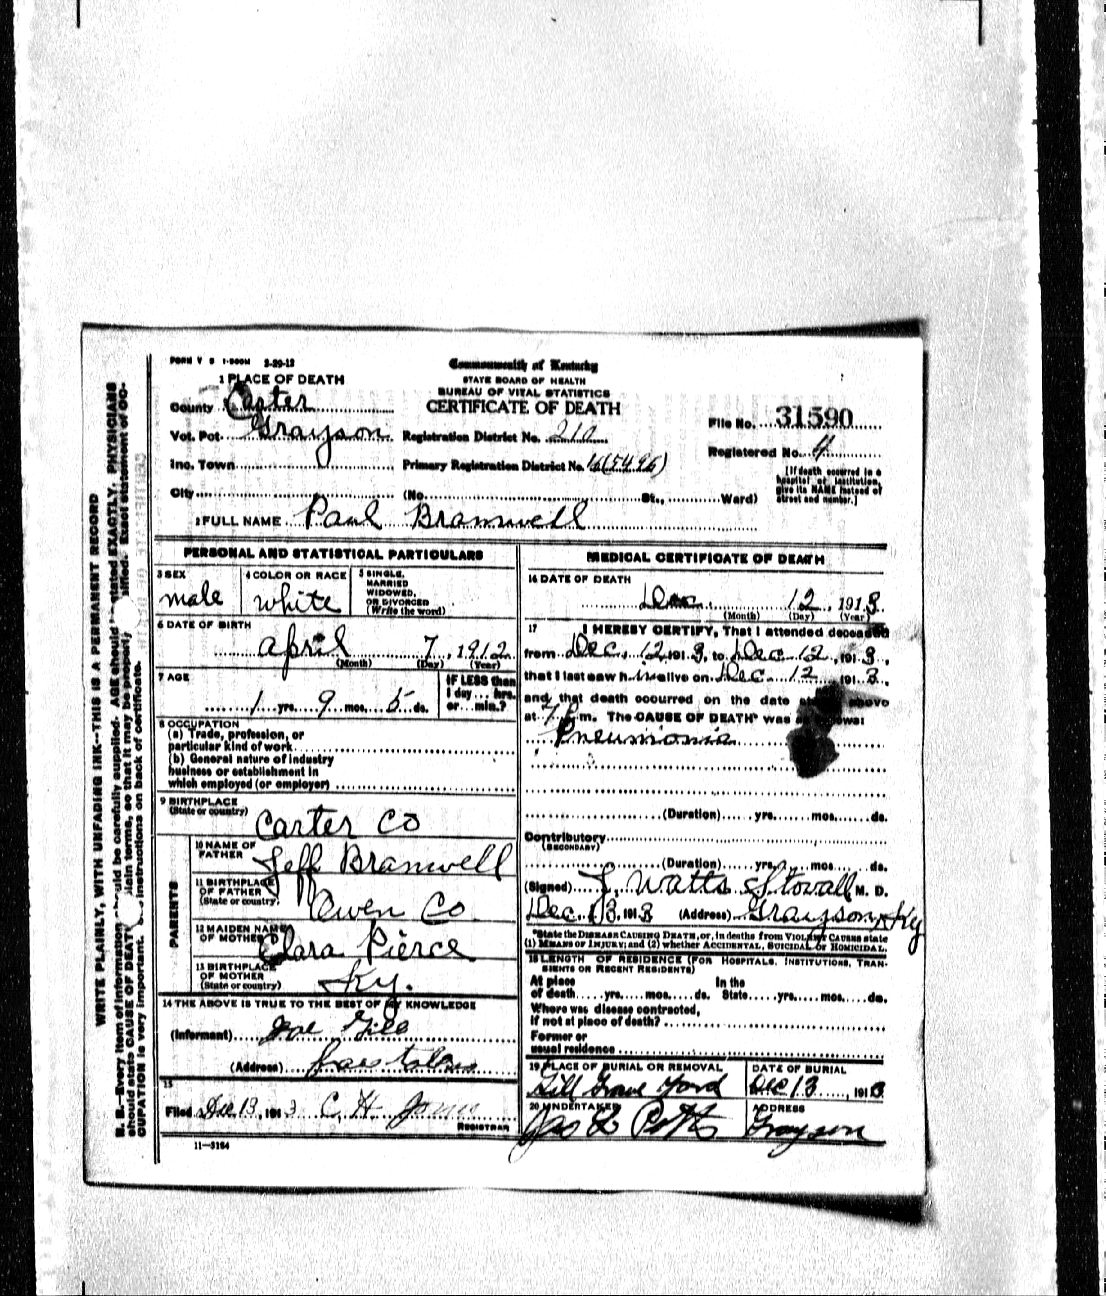 FORM V S 1-500M 3-20-13
Commonwealth of Kentucky
STATE BOARD OF HEALTH
BUREAU OF VITAL STATISTICS
CERTIFICATE OF DEATH
1 PLACE OF DEATH
County Carter
Vot. Pct. Grayson
Registration District No. 210
Inc. Town
Primary Registration District No.
City (No. St., Ward)
File No. 31590
Registered No. 4
[If death occurred in a
hospital or institution,
give its NAME instead of
street and number.]
2 FULL NAME Paul Bramwell
PERSONAL AND STATISTICAL PARTICULARS
3 SEX
male
4 COLOR OR RACE
white
5 SINGLE,
MARRIED
WIDOWED,
OR DIVORCED
(Write the word)
6 DATE OF BIRTH
April 7, 1912
(Month) (Day) (Year)
7 AGE
1 yrs. 9 mos. 5 ds.
IF LESS than
1 day ... hrs.
or ... min.?
8 OCCUPATION
(a) Trade, profession, or
particular kind of work
(b) General nature of industry
business or establishment in
which employed (or employer)
9 BIRTHPLACE
(State or country)
Carter Co
PARENTS
10 NAME OF
FATHER
Jeff Bramwell
11 BIRTHPLACE
OF FATHER
(State or country)
Owen Co
12 MAIDEN NAME
OF MOTHER
Clara Pierce
13 BIRTHPLACE
OF MOTHER
(State or country)
Ky.
14 THE ABOVE IS TRUE TO THE BEST OF MY KNOWLEDGE
(Informant) Joe Gill
(Address)
15
Filed Dec 13, 1913 C H
REGISTRAR
11-3184
MEDICAL CERTIFICATE OF DEATH
16 DATE OF DEATH
Dec. 12, 1913
(Month) (Day) (Year)
17 I HEREBY CERTIFY, That I attended deceased
from Dec. 12, 1913, to Dec 12, 1913,
that I last saw him alive on Dec. 12, 1913,
and that death occurred on the date above
at 7 P.m. The CAUSE OF DEATH* was
Pneumonia
(Duration) yrs. mos. ds.
Contributory
(SECONDARY)
(Duration) yrs. mos. ds.
(Signed) J. Watts Stovall M. D.
Dec. 13, 1913 (Address) Grayson, Ky
*State the DISEASE CAUSING DEATH, or, in deaths from VIOLENT CAUSES state
(1) MEANS OF INJURY; and (2) whether ACCIDENTAL, SUICIDAL or HOMICIDAL.
18 LENGTH OF RESIDENCE (FOR HOSPITALS, INSTITUTIONS, TRAN-
SIENTS OR RECENT RESIDENTS)
At place In the
of death yrs. mos. ds. State yrs. mos. ds.
Where was disease contracted,
If not at place of death?
Former or
usual residence
19 PLACE OF BURIAL OR REMOVAL
Gill Grave Yard
DATE OF BURIAL
Dec 13, 1913
20 UNDERTAKER
Potts
ADDRESS
Grayson
WRITE PLAINLY, WITH UNFADING INK--THIS IS A PERMANENT RECORD
N. B.--Every item of information should be carefully supplied. AGE should stated EXACTLY. PHYSICIANS
should state CAUSE OF DEATH plain terms, so that it may be properly Exact statement of OC-
CUPATION is very important. instructions on back of certificate.